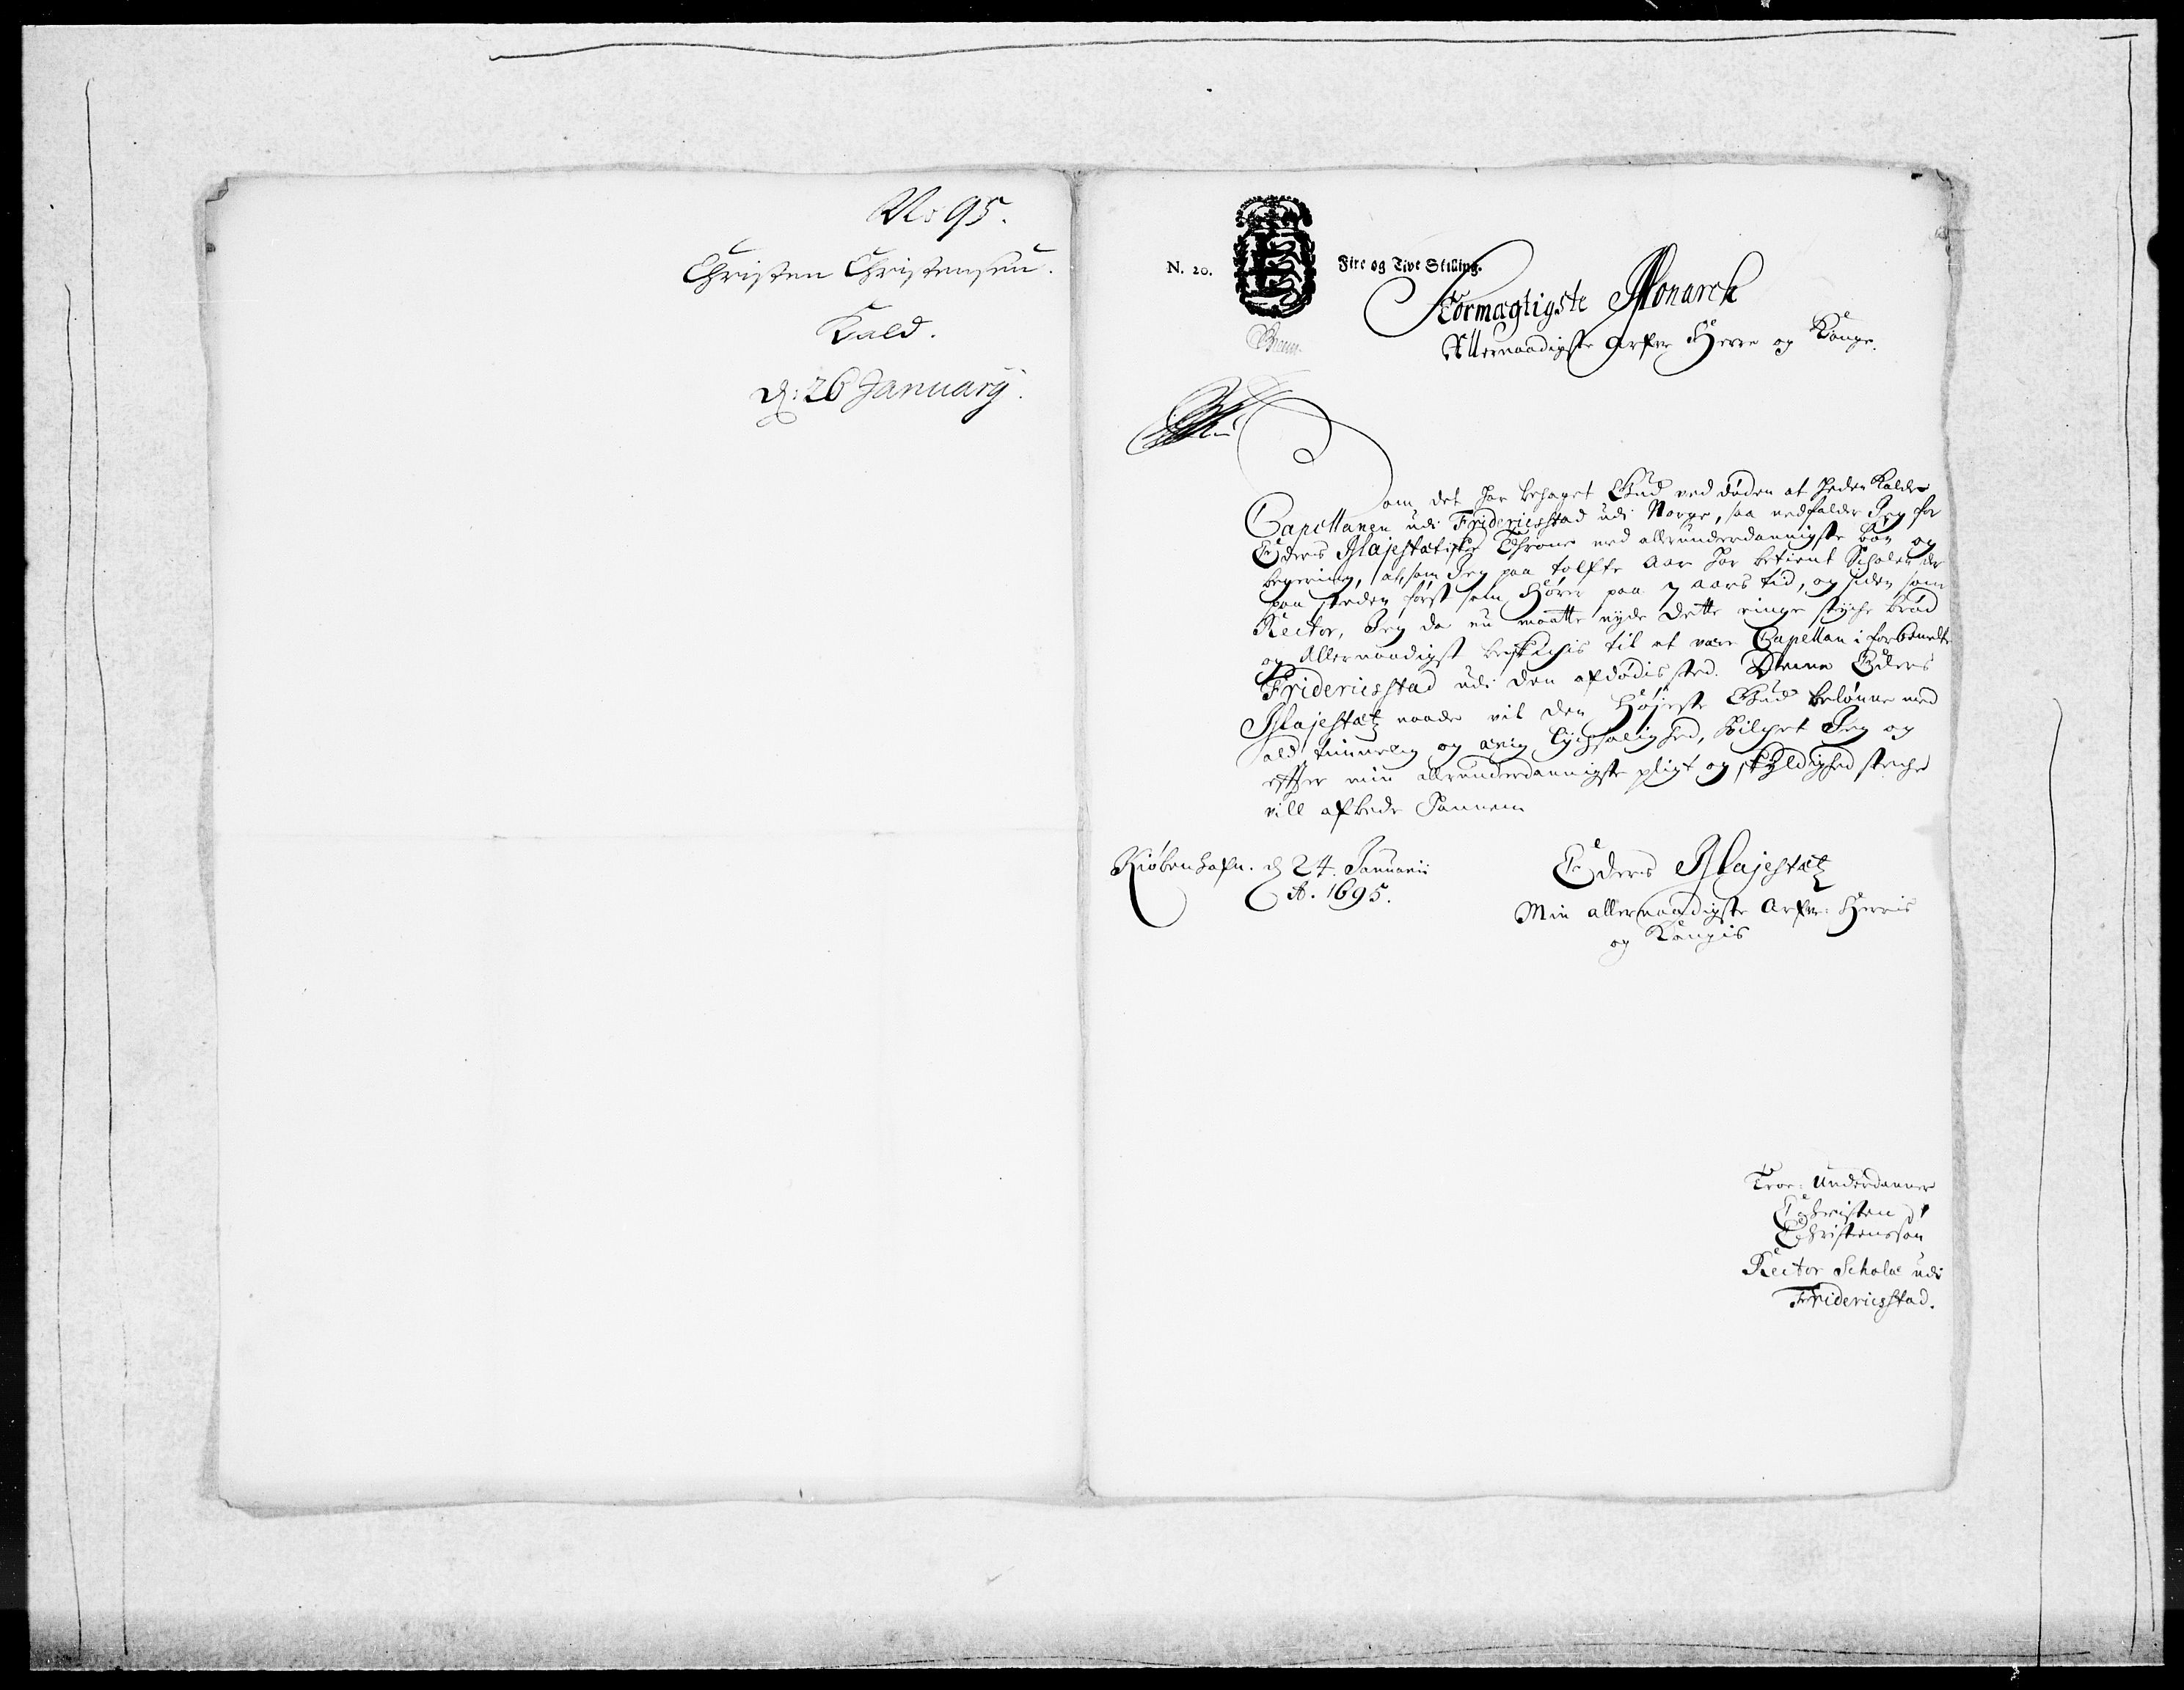 No 95.
Christen Christensen.
Kald.
d: 26 January.
N. 20.
Fire og Tive Skilling.
Stormægtigste Monarck
Allernaadigste Arfve Herre og Konge.
Som det har behaget Gud ved døden at heden kalde
Capellanen udi Fridericsstad udi Norge, saa nedfalder Jeg for
Eders Majestætiske Throne med allerunderdannigste bøn og
begering, at, som Jeg paa tolfte Aar har betient Scholen der
paa steden først som Hører paa 7 aars tid, og siden som
Rector, Jeg da nu maatte nyde dette ringe stycke brød
og Allernaadigst beskickis til at være Capellan i forbemelte
Fridericsstad udi den afdødis sted. Denne Eders
Majestætz naade vil den Høyeste Gud belønne med
ald timmelig og ævig lycksalighed, hvilcket Jeg og
effter min allerunderdannigste pligt og skyldighed stedse
vill afbede
Kiøbenhafn. d 24. Januarii
A. 1695.
Eders Majestætz
Min allernaadigste Arfve Herris
og Kongis
Troe Underdanner
Christen
Christenssøn
Rector Scholæ udi
Fridericsstad.